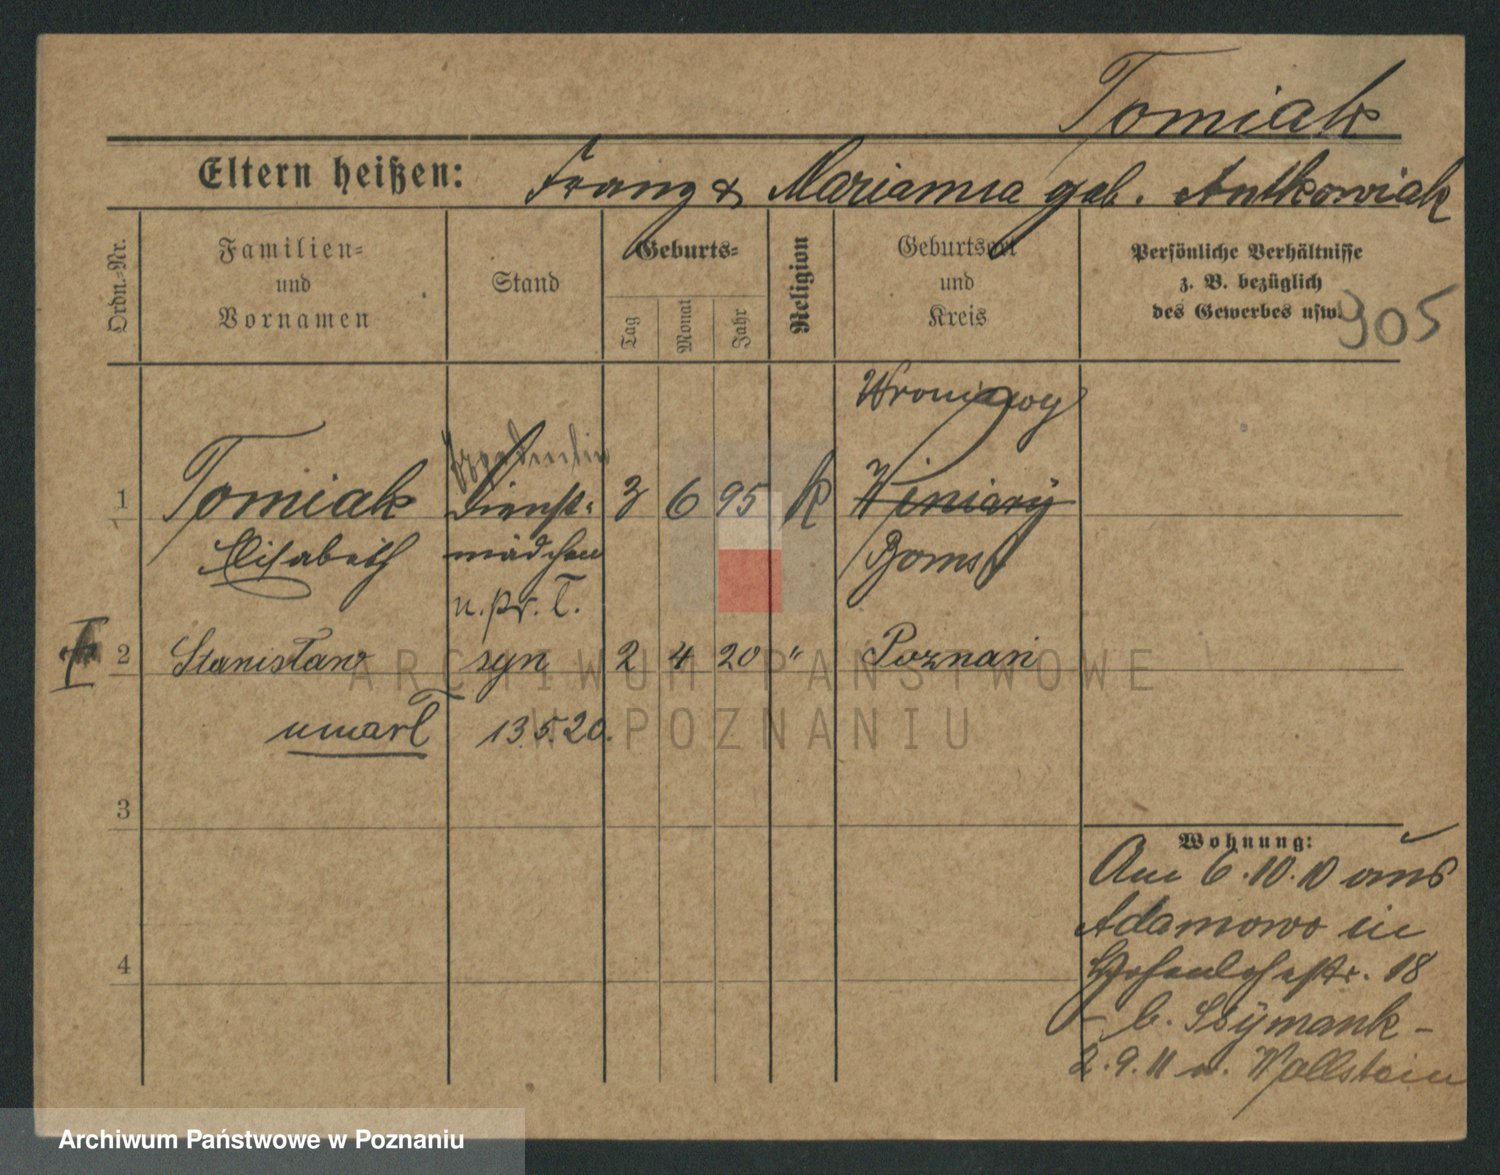 Tomiak
Eltern heißen: Franz & Marianna geb. Antkowiak
Ordn.=Nr.
Familien=
und
Vornamen
Stand
Geburts=
Tag
Monat
Jahr
Religion
Geburtsort
und
Kreis
Persönliche Verhältnisse
z. B. bezüglich
des Gewerbes usw.
905
Wroniawy
1 Tomiak Dienst- 3 6 95 k Winiary
Elisabeth mädchen Bomst
u. pr. T.
2 Stanisław syn 2 4 20 " Poznań
umarł 13.5.20.
3
4
Wohnung:
Am 6.10.10 aus
Adamowo in
Hohenlohestr. 18
- b. Szymank -
2.9.11 n. Wollstein
ARCHIWUM PAŃSTWOWE
W POZNANIU
Archiwum Państwowe w Poznaniu